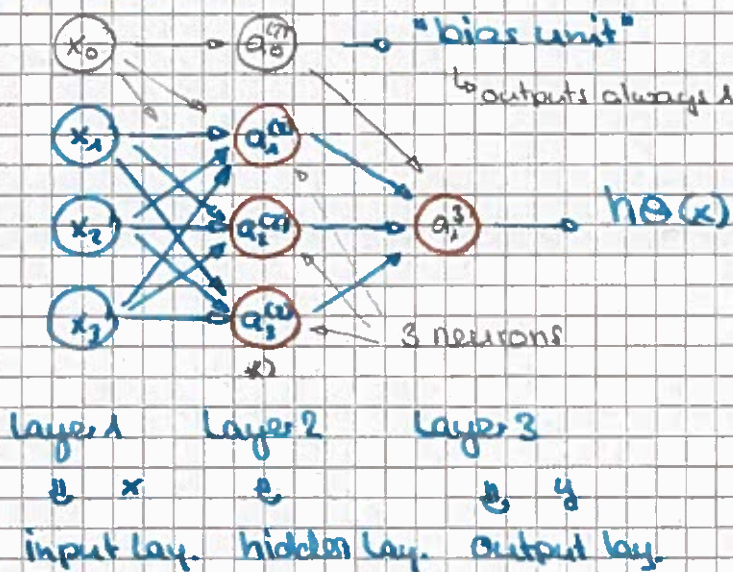 x₀ a₀⁽²⁾ "bias unit"
↳ outputs always 1
x₁ a₁⁽²⁾
x₂ a₂⁽²⁾ a₁³ hΘ(x)
x₃ a₃⁽²⁾
3 neurons
Layer 1 Layer 2 Layer 3
x y
input lay. hidden lay. output lay.